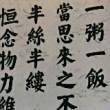 一粥一飯
當思來之不
半絲半縷
恒念物力維